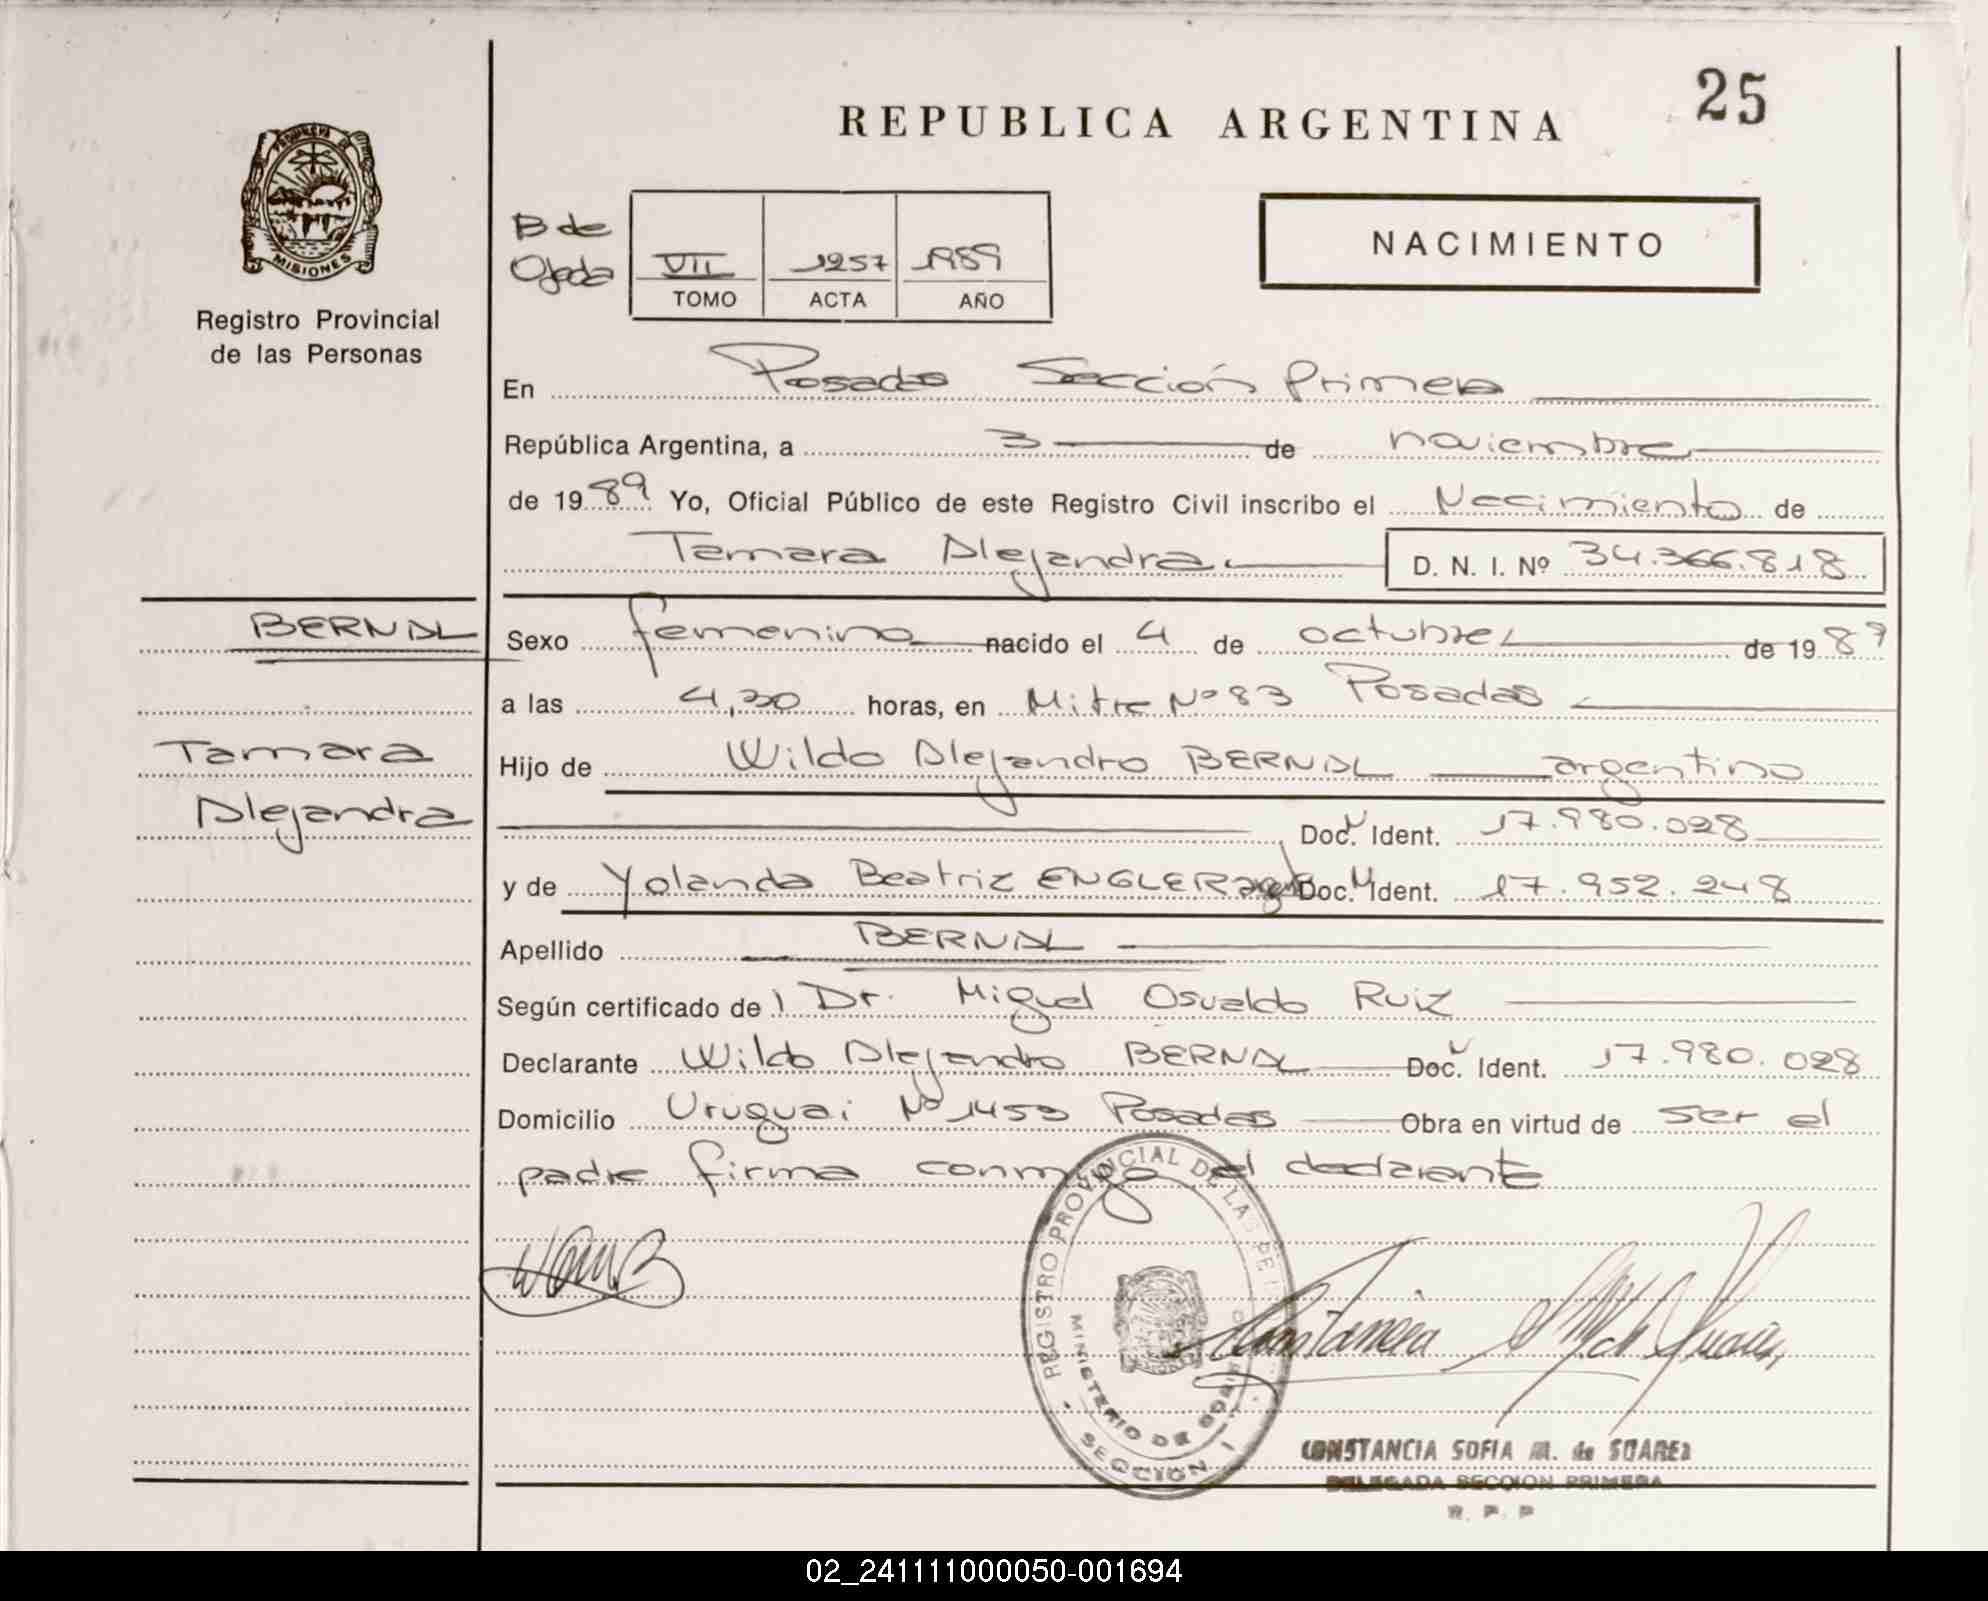 25
REPUBLICA ARGENTINA
B de
Ojeda
VII 1257 1989
TOMO ACTA AÑO
NACIMIENTO
PROVINCIA DE
MISIONES
Registro Provincial
de las Personas
En Posadas Sección Primera
República Argentina, a 3 de noviembre
de 1989 Yo, Oficial Público de este Registro Civil inscribo el Nacimiento de
Tamara Alejandra D. N. I. Nº 34.366.818
BERNAL
Sexo femenino nacido el 4 de octubre de 1989
a las 4,30 horas, en Mitre Nº 83 Posadas
Tamara
Alejandra
Hijo de Wildo Alejandro BERNAL argentino
Doc. Ident. 17.980.028
y de Yolanda Beatriz ENGLER Doc. Ident. 17.952.248
Apellido BERNAL
Según certificado de Dr. Miguel Osvaldo Ruiz
Declarante Wildo Alejandro BERNAL Doc. Ident. 17.980.028
Domicilio Uruguai Nº 1453 Posadas Obra en virtud de ser el
padre firma conmigo el declarante
REGISTRO PROVINCIAL DE LAS PER
MINISTERIO DE GOBIERNO
SECCION 1
CONSTANCIA SOFIA M. de SUAREZ
DELEGADA SECCION PRIMERA
R. P. P
02_241111000050-001694